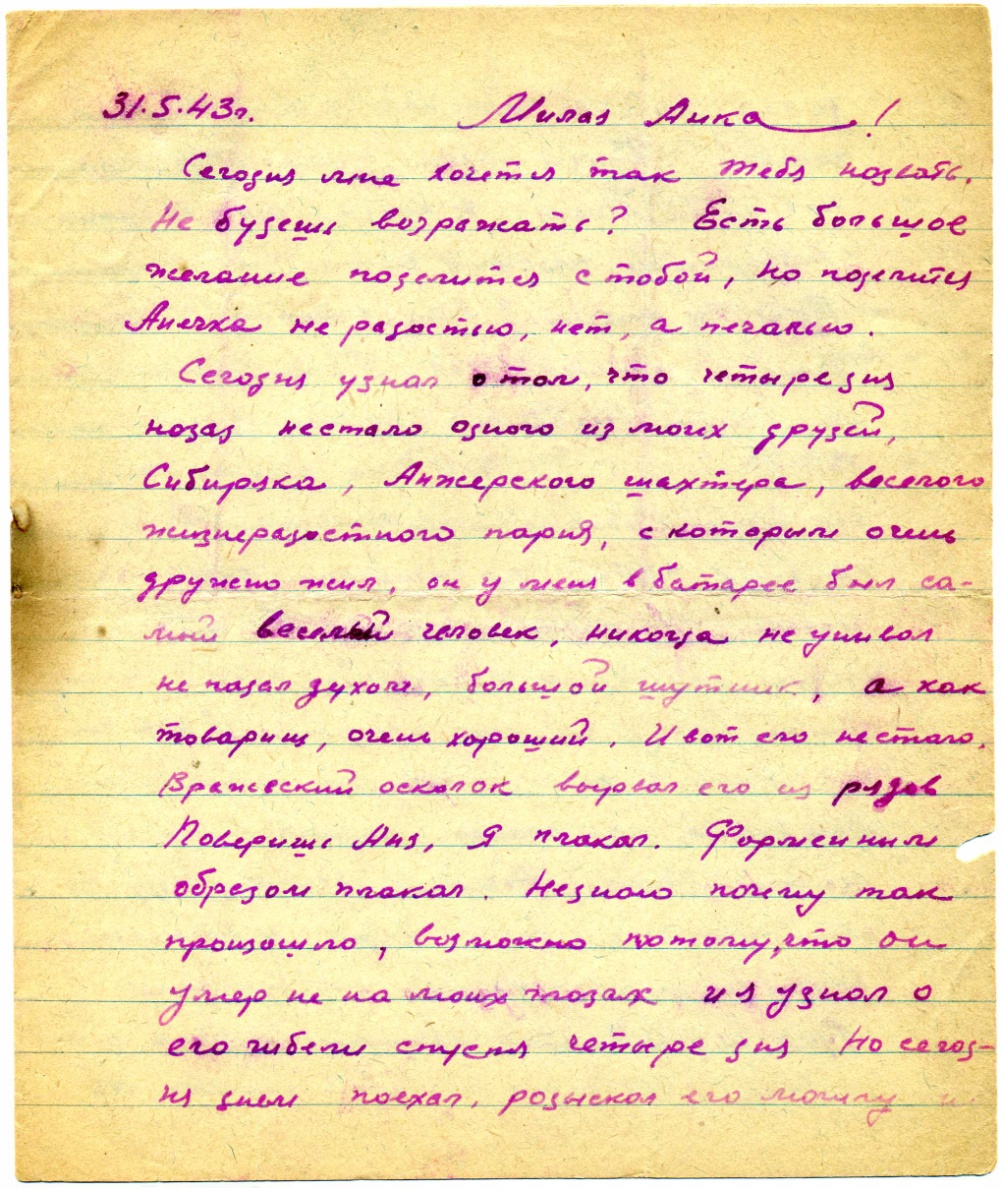 31.5.43г. Милая Анка!
Сегодня мне хочется так тебя назвать.
Не будешь возражать? Есть большое
желание поделится с тобой, но поделится
Анечка не радостью, нет, а печалью.
Сегодня узнал о том, что четыре дня
назад нестало одного из моих друзей,
Сибиряка, Анжерского шахтера, веселого
жизнерадостного парня, с которым очень
дружно жил, он у меня в батарее был са-
мый веселый человек, никогда не унывал
не падал духом, большой шутник, а как
товарищ, очень хороший. И вот его нестало.
Вражеский осколок вырвал его из рядов
Поверишь Аня, Я плакал. Форменным
образом плакал. Незнаю почему так
произошло, возможно потому, что он
умер не на моих глазах и я узнал о
его гибели спустя четыре дня Но сегод-
ня днем поехал, розыскал его могилу и